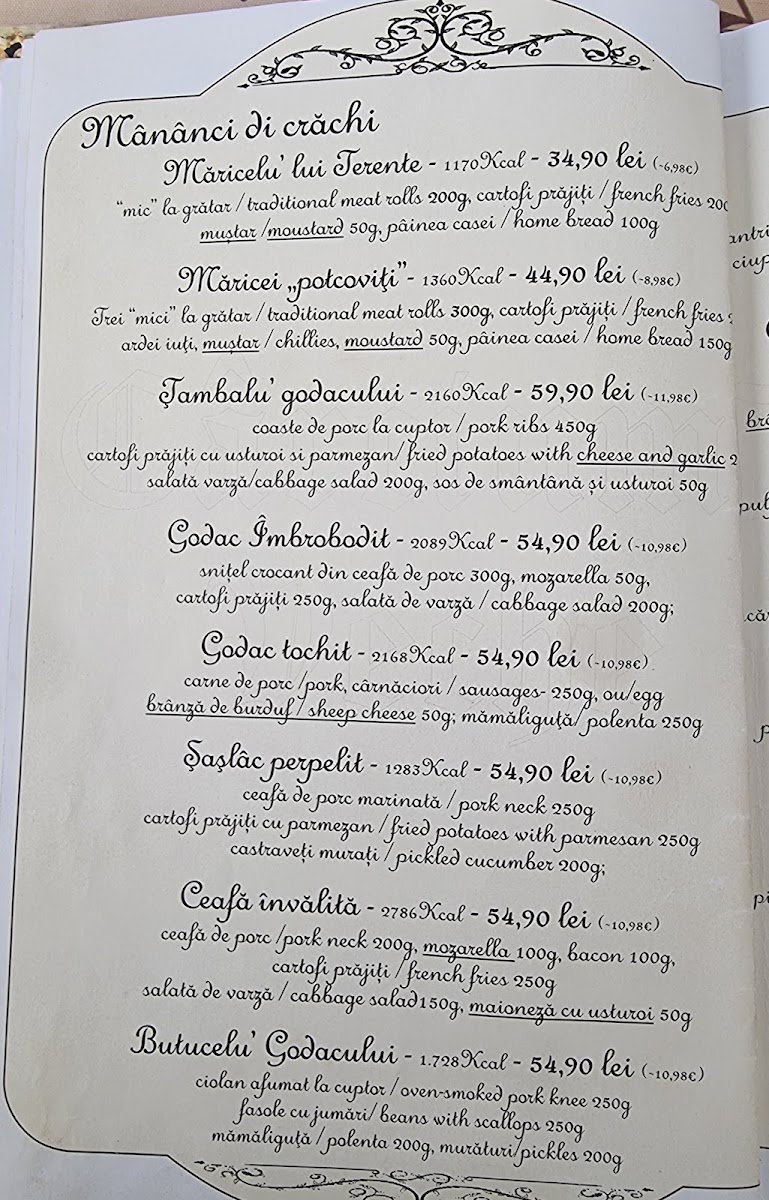 Mânânci di crăchi
Măricelu' lui Terente - 1170Kcal - 34,90 lei (~6,98€)
"mic" la grătar / traditional meat rolls 200g, cartofi prăjiți / french fries
muștar /moustard 50g, pâinea casei / home bread 100g
Măricei „potcoviţi" - 1360Kcal - 44,90 lei (~8,98€)
Trei "mici" la grătar / traditional meat rolls 300g, cartofi prăjiți / french fries
ardei iuţi, muștar / chillies, moustard 50g, pâinea casei / home bread 150g
Ţambalu' godacului - 2160Kcal - 59,90 lei (~11,98€)
coaste de porc la cuptor / pork ribs 450g
cartofi prăjiți cu usturoi si parmezan/ fried potatoes with cheese and garlic
salată varză/cabbage salad 200g, sos de smântână și usturoi 50g
Godac Îmbrobodit - 2089Kcal - 54,90 lei (~10,98€)
snițel crocant din ceafă de porc 300g, mozarella 50g,
cartofi prăjiți 250g, salată de varză / cabbage salad 200g;
Godac tochit - 2168Kcal - 54,90 lei (~10,98€)
carne de porc /pork, cârnăciori / sausages- 250g, ou/egg
brânză de burduf / sheep cheese 50g; mămăliguţă/ polenta 250g
Şaşlâc perpelit - 1283Kcal - 54,90 lei (~10,98€)
ceafă de porc marinată / pork neck 250g
cartofi prăjiți cu parmezan / fried potatoes with parmesan 250g
castraveți murați / pickled cucumber 200g;
Ceafă învălită - 2786Kcal - 54,90 lei (~10,98€)
ceafă de porc /pork neck 200g, mozarella 100g, bacon 100g,
cartofi prăjiți / french fries 250g
salată de varză / cabbage salad150g, maioneză cu usturoi 50g
Butucelu' Godacului - 1.728Kcal - 54,90 lei (~10,98€)
ciolan afumat la cuptor / oven-smoked pork knee 250g
fasole cu jumări/ beans with scallops 250g
mămăliguţă / polenta 200g, murături/pickles 200g